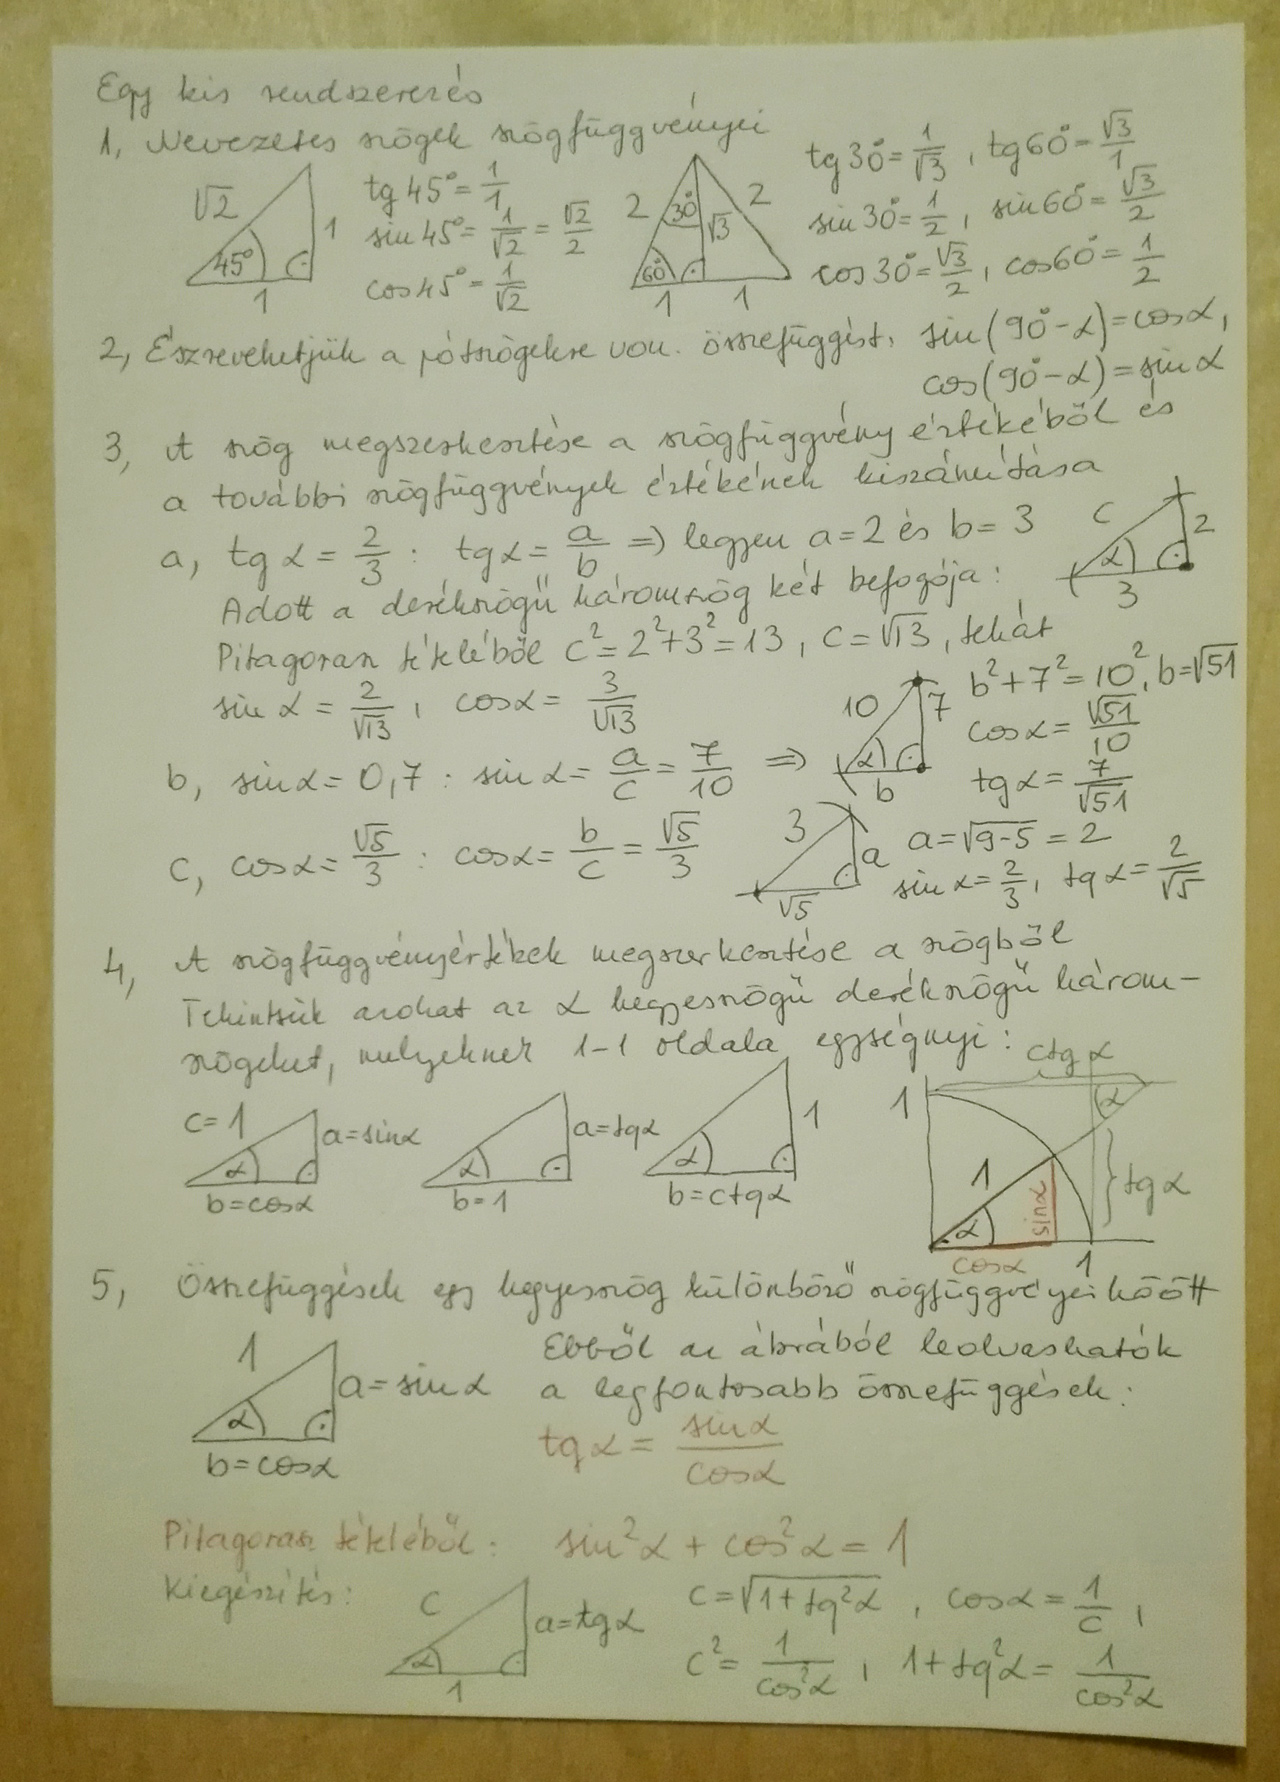 Egy kis rendszerezés
1, Nevezetes szögek szögfüggvényei
√2 1 45° 1
tg 45° = 1/1
sin 45° = 1/√2 = √2/2
cos 45° = 1/√2
2 30° √3 2 60° 1 1
tg 30° = 1/√3 , tg 60° = √3/1
sin 30° = 1/2 , sin 60° = √3/2
cos 30° = √3/2 , cos 60° = 1/2
2, Észrevehetjük a pótszögekre von. összefüggést. sin(90°-α) = cosα,
cos(90°-α) = sin α
3, A szög megszerkesztése a szögfüggvény értékéből és
a további szögfüggvények értékének kiszámítása
a, tg α = 2/3 : tg α = a/b ⇒ legyen a = 2 és b = 3
Adott a derékszögű háromszög két befogója:
c 2 α 3
Pitagorasz tételéből c² = 2² + 3² = 13 , c = √13 , tehát
sin α = 2/√13 , cosα = 3/√13
b, sin α = 0,7 : sin α = a/c = 7/10 ⇒
10 7 α b
b² + 7² = 10², b = √51
cos α = √51/10
tg α = 7/√51
c, cosα = √5/3 : cosα = b/c = √5/3
3 a √5
a = √9-5 = 2
sin α = 2/3 , tg α = 2/√5
4, A szögfüggvényértékek megszerkesztése a szögből
Tekintsük azokat az α hegyesszögű derékszögű három-
szögeket, melyeknek 1-1 oldala egységnyi:
c = 1 a = sinα α b = cosα
a = tgα α b = 1
1 α b = ctgα
ctg α 1 α 1 tg α α sinα cosα 1
5, Összefüggések egy hegyesszög különböző szögfüggvényei között
1 a = sin α α b = cosα
Ebből az ábrából leolvashatók
a legfontosabb összefüggések:
tg α = sinα/cosα
Pitagorasz tételéből: sin²α + cos²α = 1
Kiegészítés:
c a = tgα α 1
c = √1 + tg²α , cosα = 1/c ,
c² = 1/cos²α , 1 + tg²α = 1/cos²α